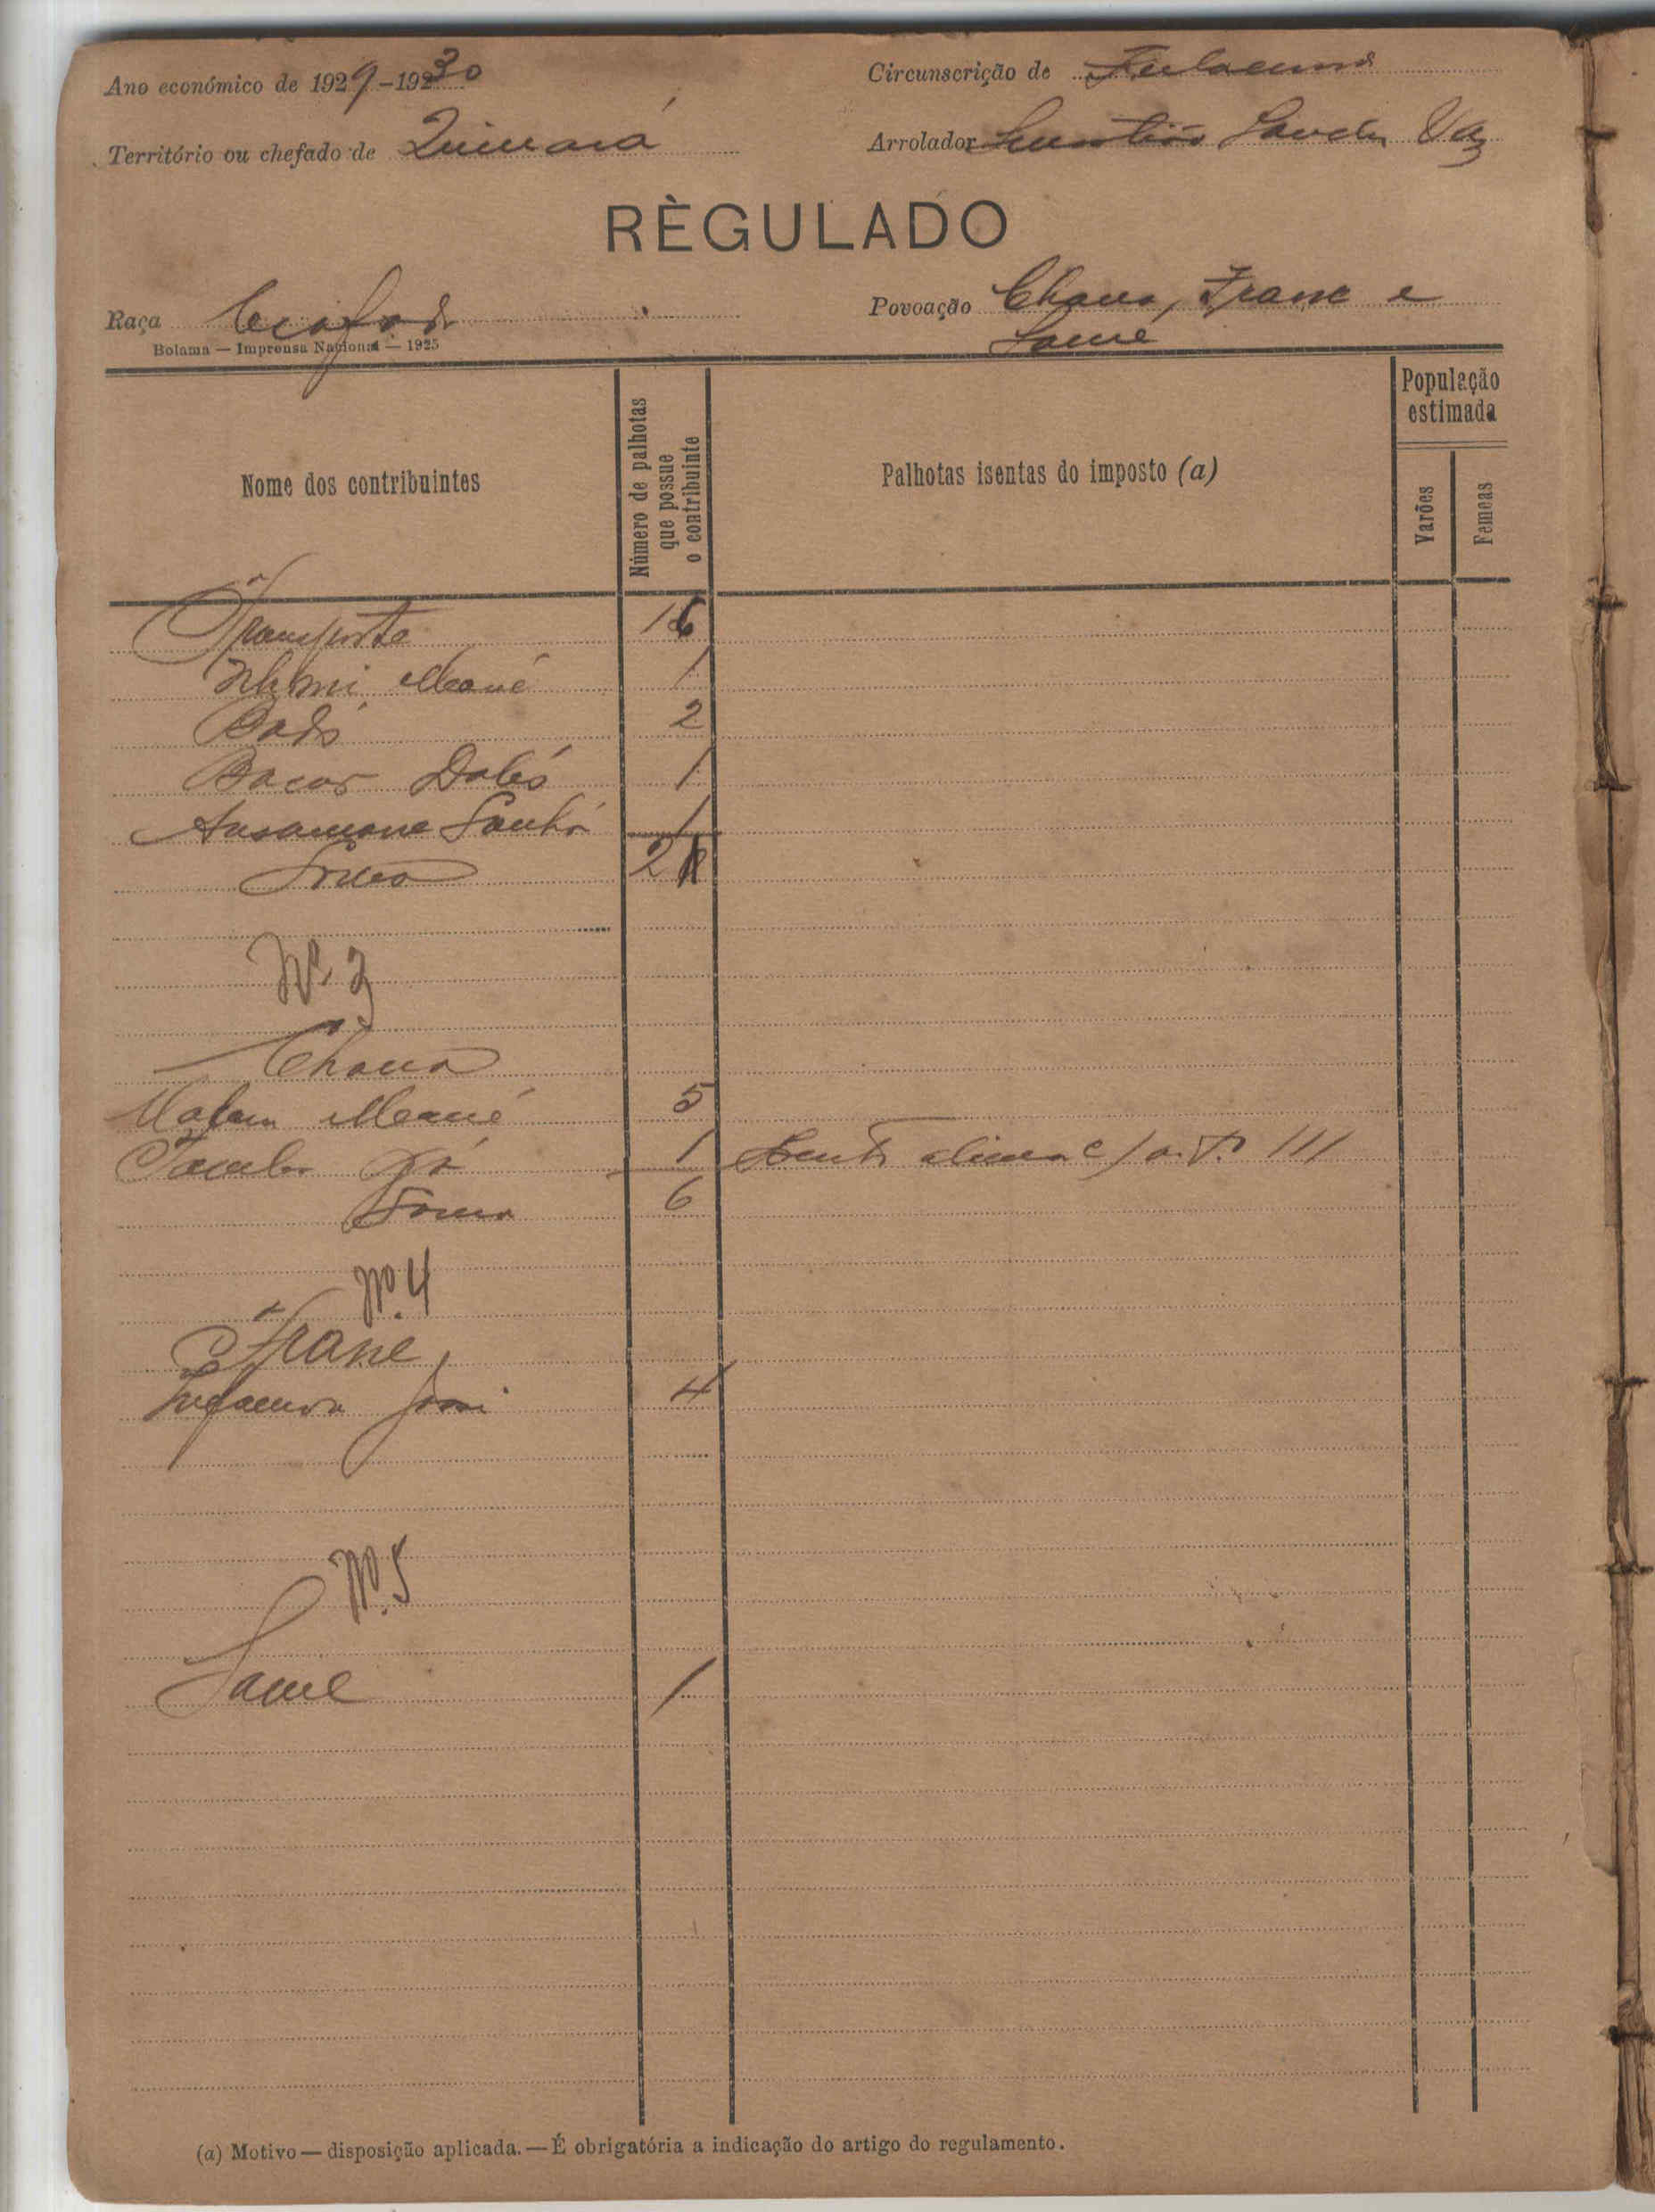 Ano económico de 1929-1930
Circunscrição de Fulacunda
Território ou chefado de Quinará
Arrolador Vaz
RÈGULADO
Raça Biafada
Povoação Chana, Frane e
Lamé
Bolama — Imprensa Nacional — 1925
Nome dos contribuintes
Número de palhotas que possue o contribuinte
Palhotas isentas do imposto (a)
População estimada
Varões
Femeas
Transporte 16
Mané 1
2
Bacar Dabó 1
Ansumane Sanhá 1
Soma 21
Nº 3
Chana
Malam Mané 5
1 c/ art.º III
Soma 6
Nº 4
Frane
4
Nº 5
Lamé 1
(a) Motivo — disposição aplicada. — É obrigatória a indicação do artigo do regulamento.